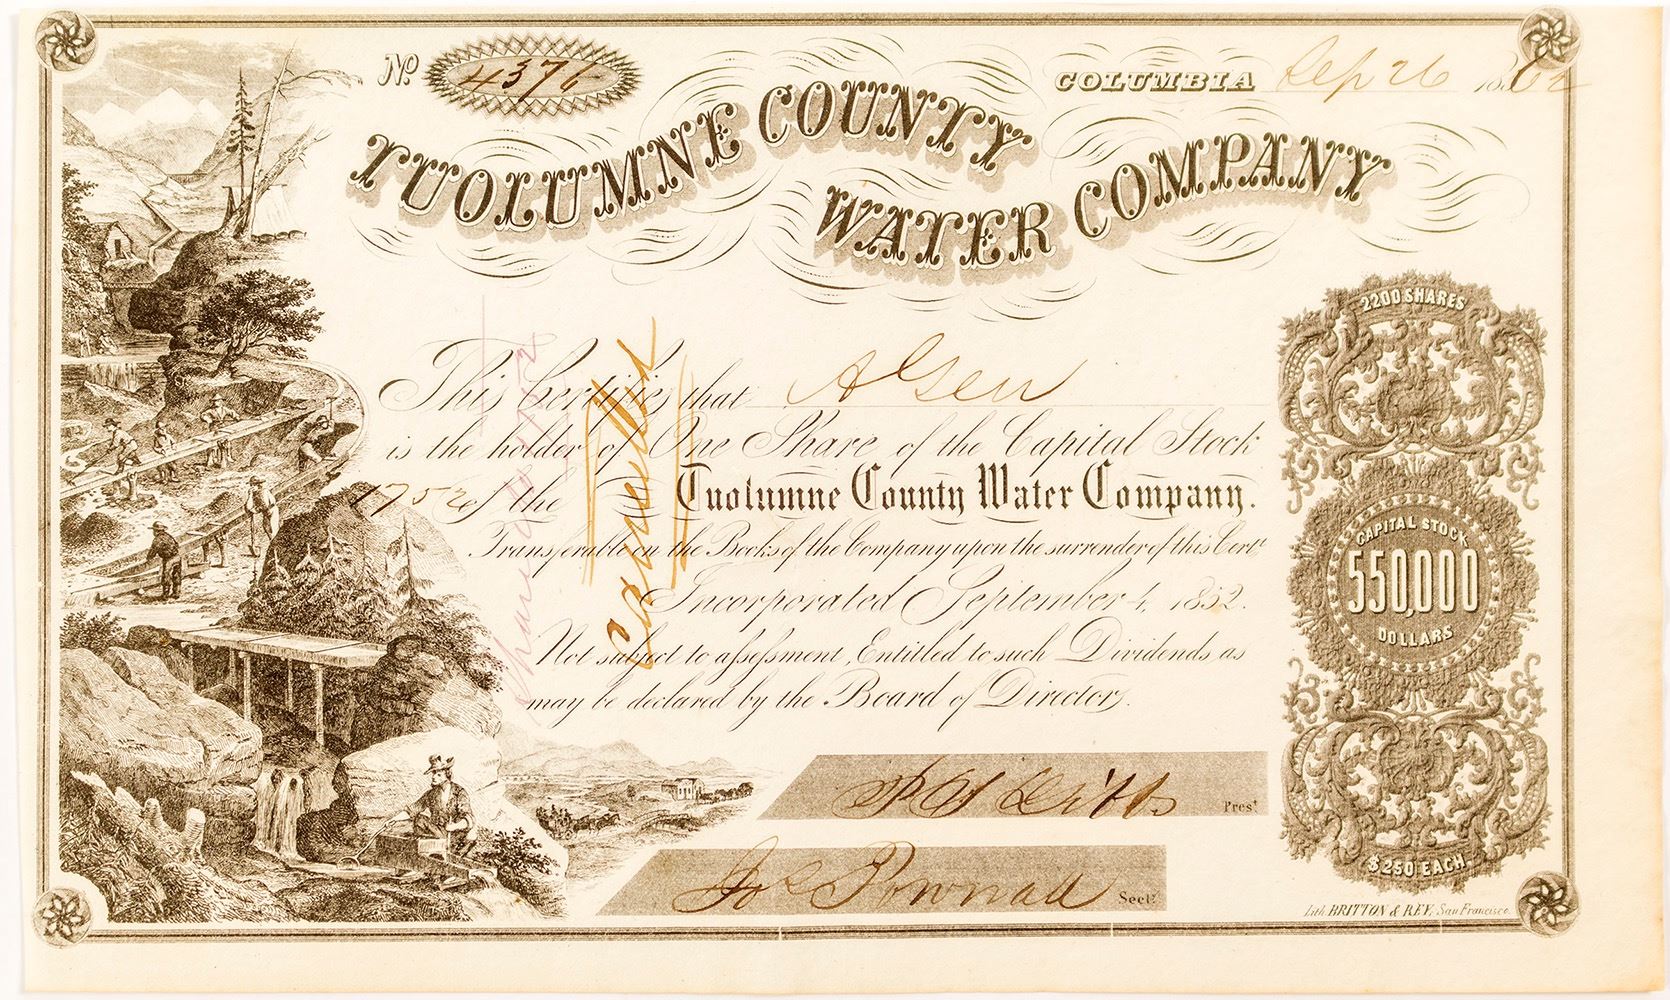 No. 4376
COLUMBIA Sep 26 1862
TUOLUMNE COUNTY
WATER COMPANY
This Certifies that A Gen
is the holder of One Share of the Capital Stock
1752 of the Tuolumne County Water Company.
Transferable on the Books of the Company upon the surrender of this Cert.
Incorporated September 4, 1852.
Not subject to assessment, Entitled to such Dividends as
may be declared by the Board of Directors.
Prest.
Jos Pownall Secty.
Cancelled
2200 SHARES
CAPITAL STOCK
550,000
DOLLARS
$250 EACH.
Lith. BRITTON & REY, San Francisco.